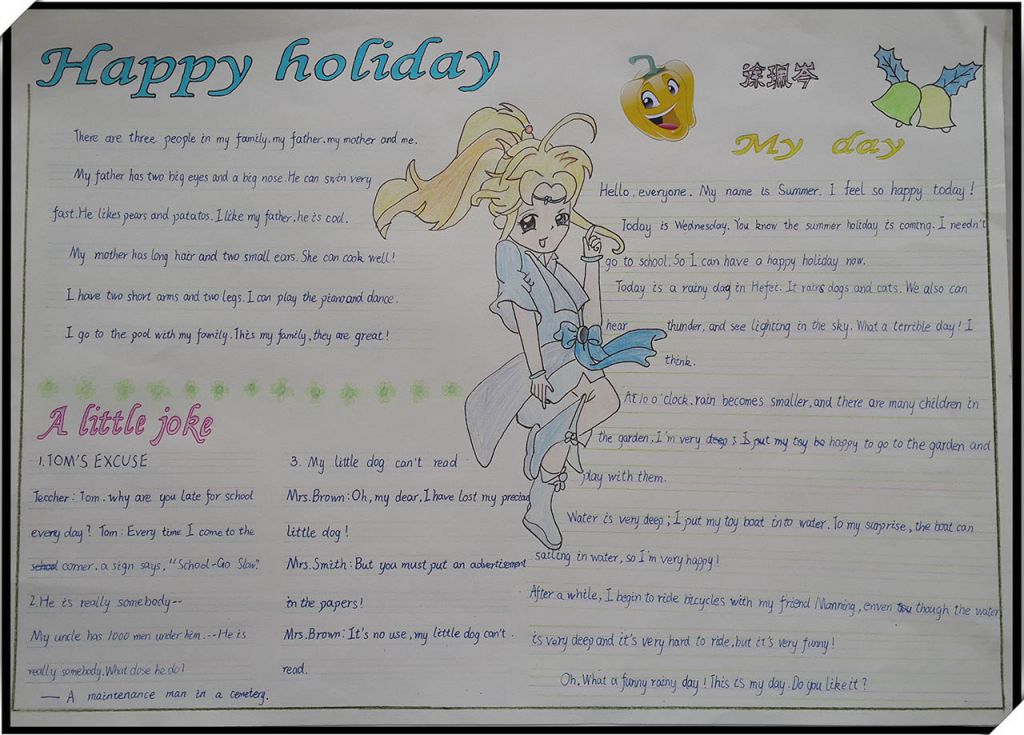 Happy holiday
There are three people in my family, my father, my mother and me.
My father has two big eyes and a big nose. He can swin very
fast. He likes pears and patatos. I like my father, he is cool.
My mother has long hair and two small ears. She can cook well!
I have two short arms and two legs. I can play the piano and dance.
I go to the pool with my family. This my family, they are great!
A little joke
1. TOM'S EXCUSE
Teccher: Tom. why are you late for school
every day? Tom: Every time I come to the
corner. a sign says, "School-Go Slow."
2. He is really somebody--
My uncle has 1000 men under him. -- He is
really somebody. What dose he do?
— A maintenance man in a cemeterg.
3. My little dog can't read
Mrs. Brown: Oh, my dear, I have lost my precious
little dog!
Mrs. Smith: But you must put an advertisement
in the papers!
Mrs. Brown: It's no use, my little dog can't.
read.
徐珮岑
My day
Hello, everyone. My name is Summer. I feel so happy today!
Today is Wednesday. You know the summer holiday is coming. I needn't
go to school. So I can have a happy holiday now.
Today is a rainy dag in Hefei. It rains dogs and cats. We also can
hear thunder, and see lighting in the sky. What a terrible day! I
think.
At 10 o'clock, rain becomes smaller, and there are many children in
the garden, I'm very deep; I put my toy bo happy to go to the garden and
play with them.
Water is very deep; I put my toy boat into water. To my surprise, the boat can
sailing in water, so I'm very happy!
After a while, I begin to ride bicycles with my friend Manning, enven though the water
is very deep and it's very hard to ride, but it's very funny!
Oh, What a funny rainy day! This is my day. Do you like it?